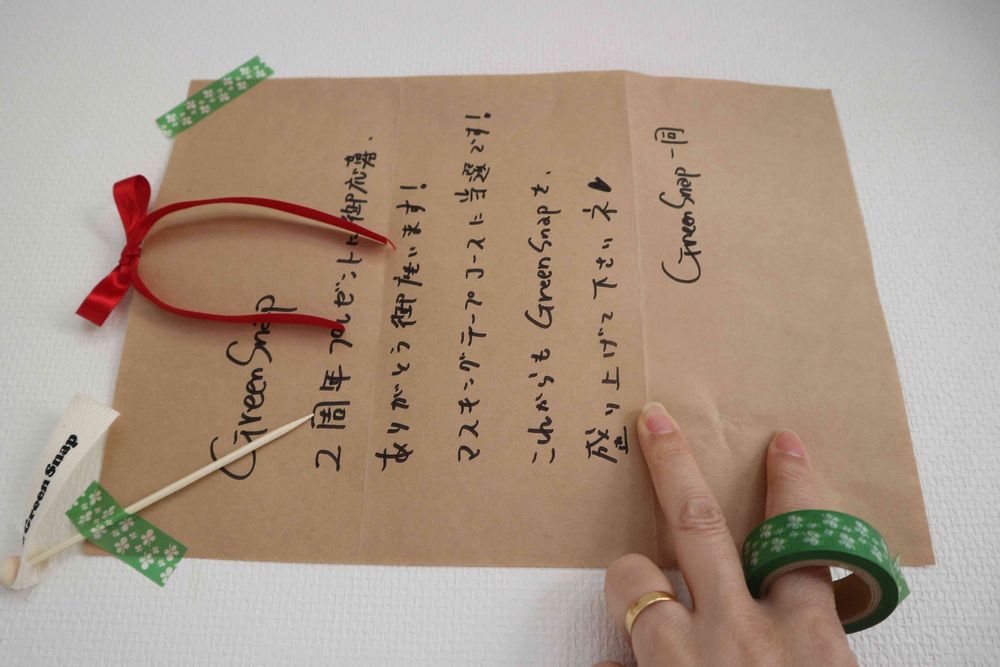 GreenSnap
2周年プレゼントに御応募、
ありがとう御座います！
マスキングテープコースに当選です！
これからもGreenSnapを、
盛り上げて下さいネ♥
GreenSnap一同
Green Snap